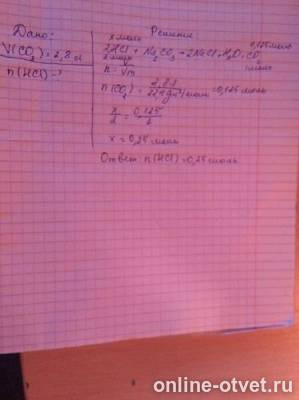 Дано:
V(CO₂)=2,8 л
n(HCl)-?
Решение
x моль 0,125 моль
2HCl + Na₂CO₃ → 2NaCl + H₂O + CO₂
n = Vm
n(CO₂) = 2,8 л / 22,4 дм³/моль = 0,125 моль
x/2 = 0,125/1
x = 0,25 моль
Ответ n(HCl) = 0,25 моль
online-otvet.ru